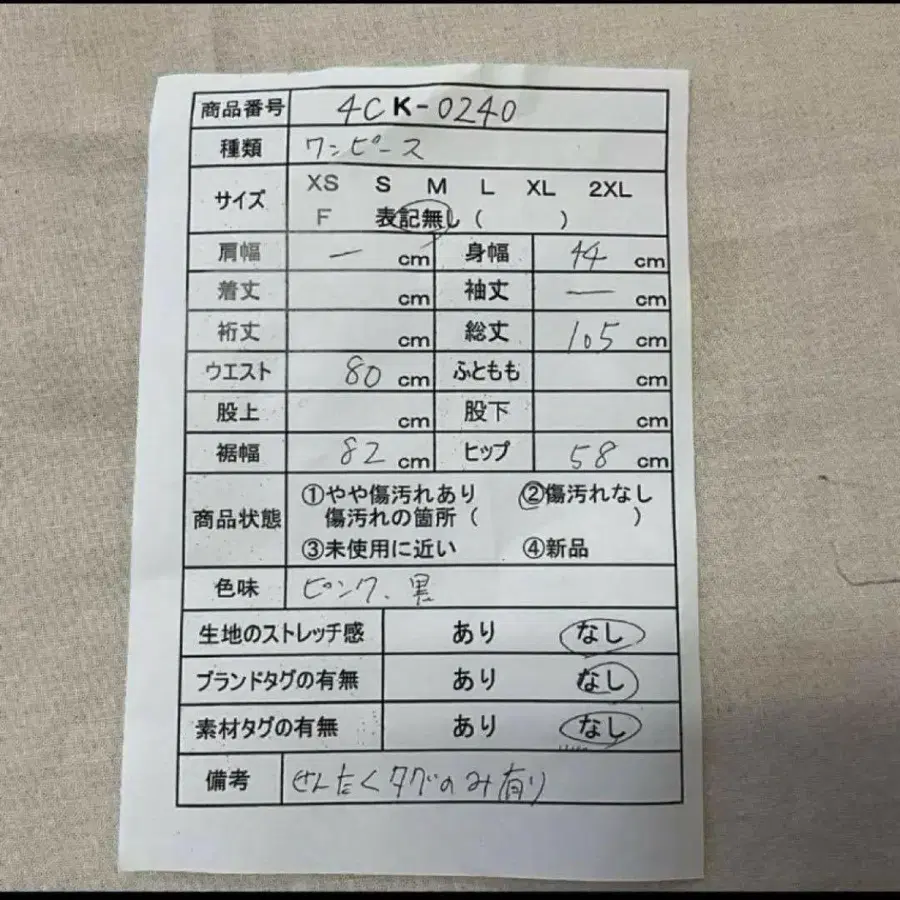 商品番号 4CK-0240
種類 ワンピース
サイズ XS S M L XL 2XL
F 表記無し( )
肩幅 — cm 身幅 44 cm
着丈 cm 袖丈 — cm
裄丈 cm 総丈 105 cm
ウエスト 80 cm ふともも cm
股上 cm 股下 cm
裾幅 82 cm ヒップ 58 cm
商品状態 ①やや傷汚れあり ②傷汚れなし
傷汚れの箇所( )
③未使用に近い ④新品
色味 ピンク、黒
生地のストレッチ感 あり なし
ブランドタグの有無 あり なし
素材タグの有無 あり なし
備考 せんたくタグのみ有り